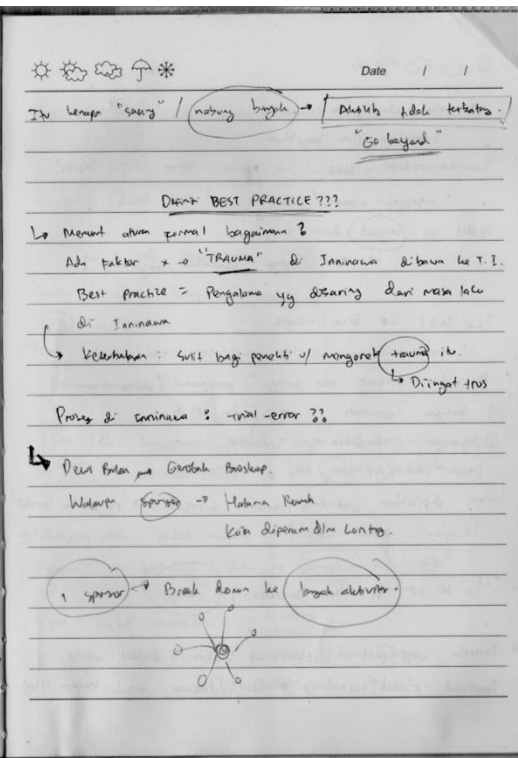 Date / /
Itu kenapa "saving" / nabung banyak → Aktifitas tidak terbatas.
"Go beyond"
Definisi BEST PRACTICE ???
↳ Menurut aturan formal bagaimana ?
Ada faktor x → "TRAUMA" di Ininnawa dibawa ke T.I.
Best practice = Pengalaman yg disaring dari masa lalu
di Ininnawa
↳ Kesulitan : sulit bagi peneliti u/ mengorek trauma itu.
↳ Diingat trus
Proses di Ininnawa : trial-error ??
↳ Dewi Bulan → Gerobak Bioskop.
Walaupun sponsor → Halaman Rumah
Kota diperam dlm Lontar.
1 sponsor → Break down ke banyak aktivitas.